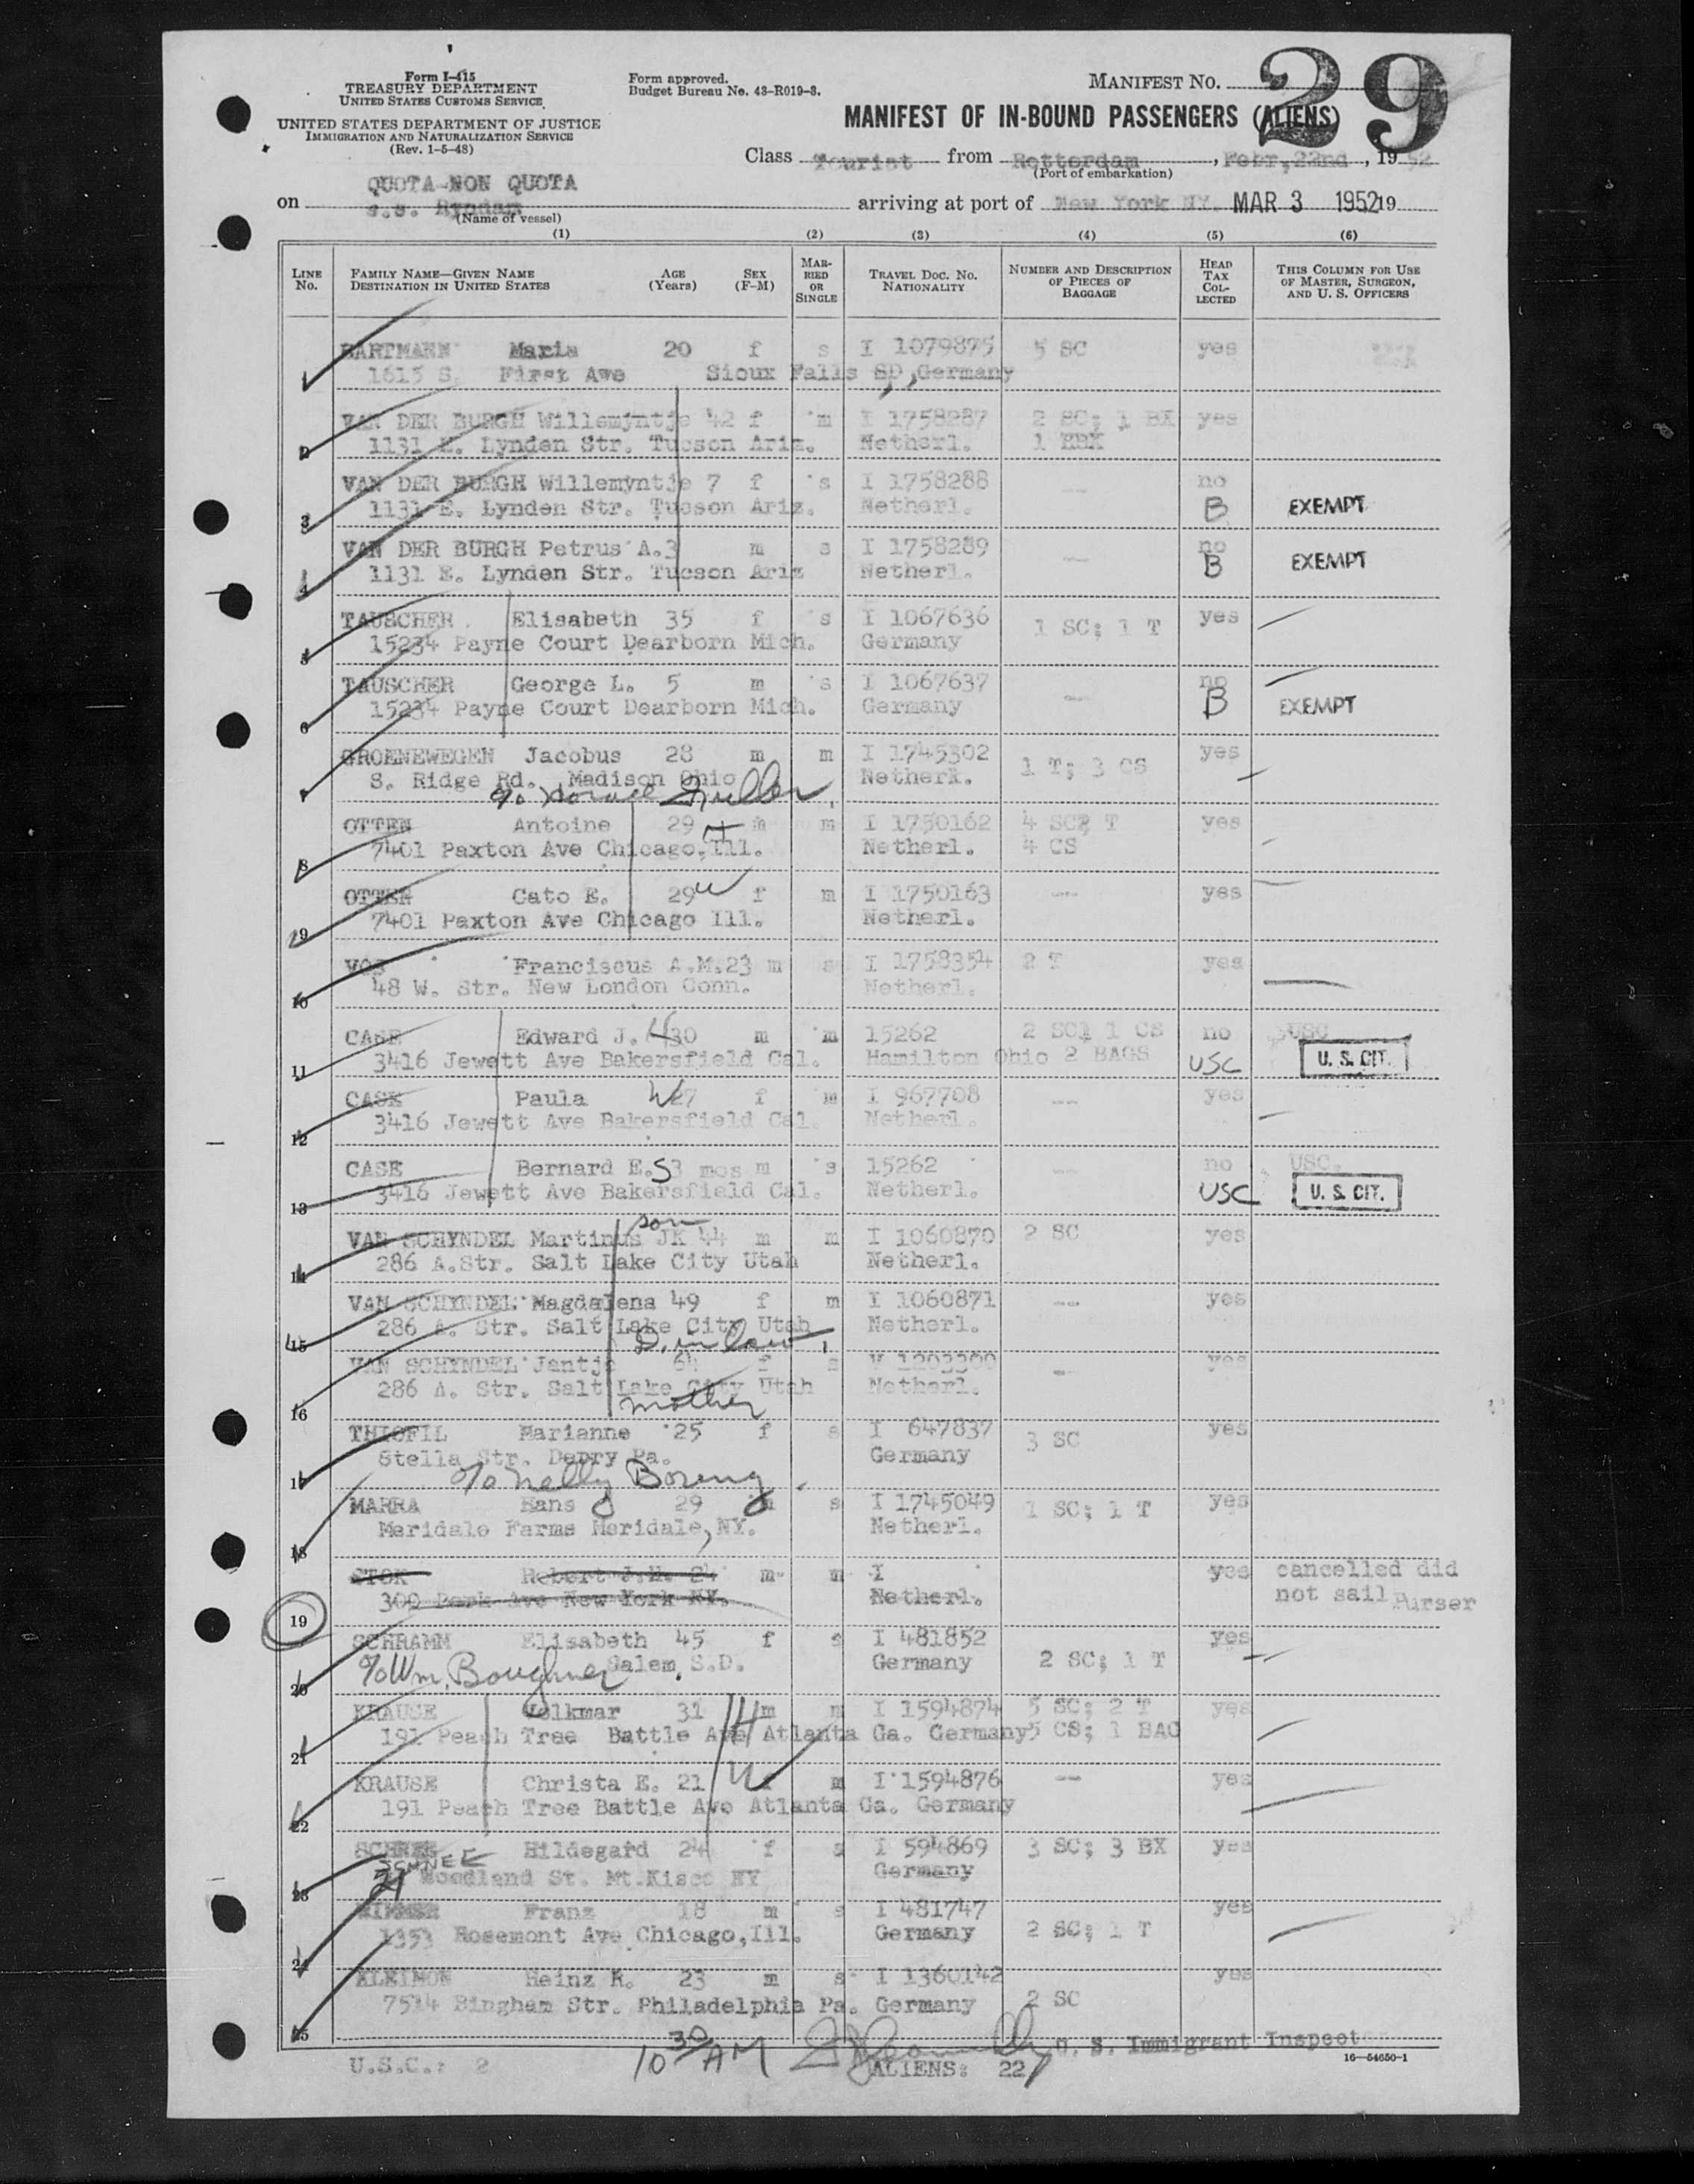 Form I-415
TREASURY DEPARTMENT
UNITED STATES CUSTOMS SERVICE
UNITED STATES DEPARTMENT OF JUSTICE
IMMIGRATION AND NATURALIZATION SERVICE
(Rev. 1-5-48)
Form approved.
Budget Bureau No. 43-R019-3.
MANIFEST NO. 29
MANIFEST OF IN-BOUND PASSENGERS (ALIENS)
Class Tourist from Rotterdam, Febr, 22nd, 1952
(Port of embarkation)
QUOTA-NON QUOTA
on s.s. Ryndam arriving at port of New York NY. MAR 3 1952 19
(Name of vessel)
(1) (2) (3) (4) (5) (6)
LINE No. FAMILY NAME—GIVEN NAME DESTINATION IN UNITED STATES AGE (Years) SEX (F-M) MARRIED OR SINGLE TRAVEL DOC. NO. NATIONALITY NUMBER AND DESCRIPTION OF PIECES OF BAGGAGE HEAD TAX COLLECTED THIS COLUMN FOR USE OF MASTER, SURGEON, AND U. S. OFFICERS
BARTMANN Maria 20 f s I 1079875 5 SC yes
1 1615 S. First Awe Sioux Falls SD, Germany
VAN DER BURGH Willemyntje 42 f m I 1758287 2 SC; 1 BX yes
2 1131 E. Lynden Str. Tucson Ariz. Netherl. 1 HBX
VAN DER BURGH Willemyntje 7 f s I 1758288 -- no
3 1131 E. Lynden Str. Tucson Ariz. Netherl. B EXEMPT
VAN DER BURGH Petrus A. 3 m s I 1758289 -- no
4 1131 E. Lynden Str. Tucson Ariz Netherl. B EXEMPT
TAUSCHER Elisabeth 35 f s I 1067636 1 SC; 1 T yes
5 15234 Payne Court Dearborn Mich. Germany
TAUSCHER George L. 5 m s I 1067637 -- no
6 15234 Payne Court Dearborn Mich. Germany B EXEMPT
GROENEWEGEN Jacobus 28 m m I 1745302 1 T; 3 CS yes
7 S. Ridge Rd. Madison Ohio Netherl.
c/o
OTTEN Antoine 29 H m m I 1750162 4 SC T yes
8 7401 Paxton Ave Chicago, Ill. Netherl. 4 CS
OTTEN Cato E. 29 W f m I 1750163 -- yes
9 7401 Paxton Ave Chicago Ill. Netherl.
VOS Franciscus A.M. 23 m s I 1758354 2 T yes
10 48 W. Str. New London Conn. Netherl.
CASE Edward J. H 30 m m 15262 2 SC 1 CS no USC
11 3416 Jewett Ave Bakersfield Cal. Hamilton Ohio 2 BAGS USC U. S. CIT.
CASE Paula W 27 f m I 967708 -- yes
12 3416 Jewett Ave Bakersfield Cal. Netherl.
CASE Bernard E. S 3 mos m s 15262 -- no USC.
13 3416 Jewett Ave Bakersfield Cal. Netherl. USC U. S. CIT.
son
VAN SCHYNDEL Martinus JH 44 m m I 1060870 2 SC yes
14 286 A.Str. Salt Lake City Utah Netherl.
VAN SCHYNDEL Magdalena 49 f m I 1060871 -- yes
15 286 A. Str. Salt Lake City Utah Netherl.
D. in law
VAN SCHYNDEL Jantje 64 f s V 1203200 -- yes
16 286 A. Str. Salt Lake City Utah Netherl.
mother
THIOFIL Marianne 25 f s I 647837 3 SC yes
17 Stella Str. Depry Pa. Germany
c/o Nelly Boreng
MARRA Hans 29 m s I 1745049 1 SC; 1 T yes
18 Meridale Farms Meridale, NY. Netherl.
STOK Robert J.H. 24 m m I yes cancelled did
19 300 Park Ave New York NY. Netherl. not sail Purser
SCHRAMM Elisabeth 45 f s I 481852 yes
20 c/o Wm. Boughner Salem, S.D. Germany 2 SC; 1 T
KRAUSE Volkmar 31 H m m I 1594874 5 SC; 2 T yes
21 191 Peach Tree Battle Ave Atlanta Ga. Germany 5 CS; 1 BAG
KRAUSE Christa E. 21 W f m I 1594876 -- yes
22 191 Peach Tree Battle Ave Atlanta Ga. Germany
SCHNEE Hildegard 24 f s I 594869 3 SC; 3 BX yes
SCHNEE
23 21 Woodland St. Mt.Kisco NY Germany
WIMMER Franz 18 m s I 481747 yes
24 1353 Rosemont Ave Chicago, Ill. Germany 2 SC; 1 T
KLEIMON Heinz R. 23 m s I 1360142 yes
25 7514 Bingham Str. Philadelphia Pa. Germany 2 SC
10 30 AM U. S. Immigrant Inspector
16—54650-1
U.S.C.: 2 ALIENS: 22